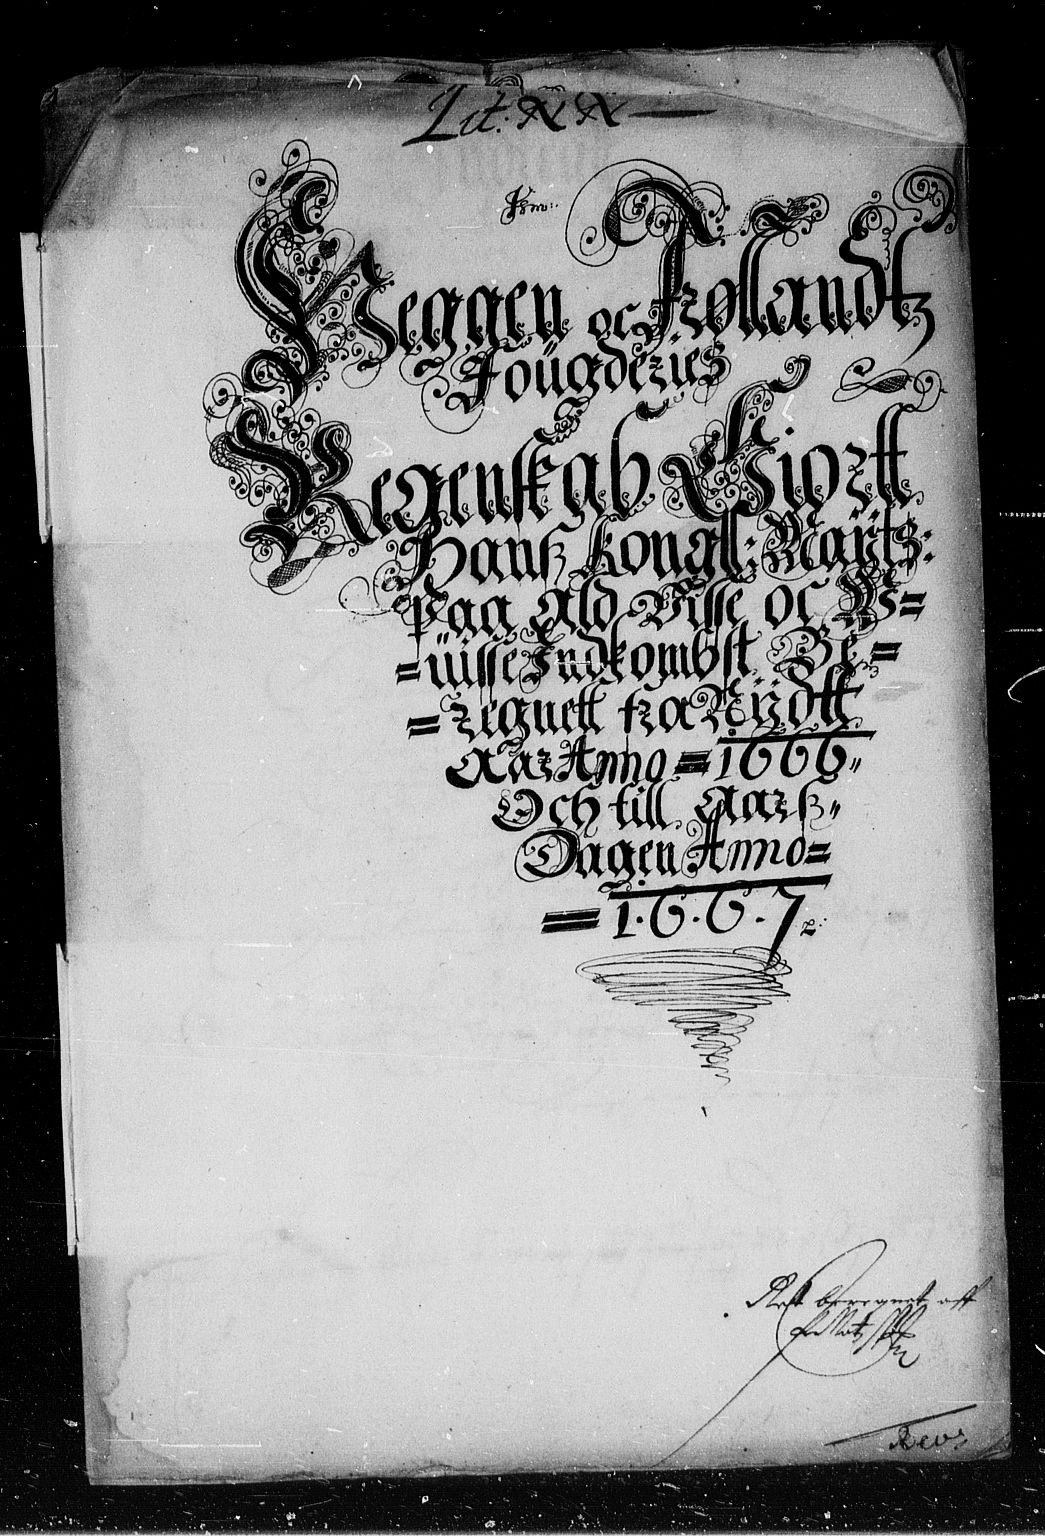 Lit: XX
Neggen oc Frøllandtz
Fougderies
Regenskab Giortt
Hanß Kongll: Maÿtz:
Paa Ald Visse oc W=
=uisse Indkombst. Be=
=regnett fra Nÿdtt
Aar Anno = 1666
Och till Aarß
Dagen Anno=
= 1.6.6.7
beregnet aff
Revs